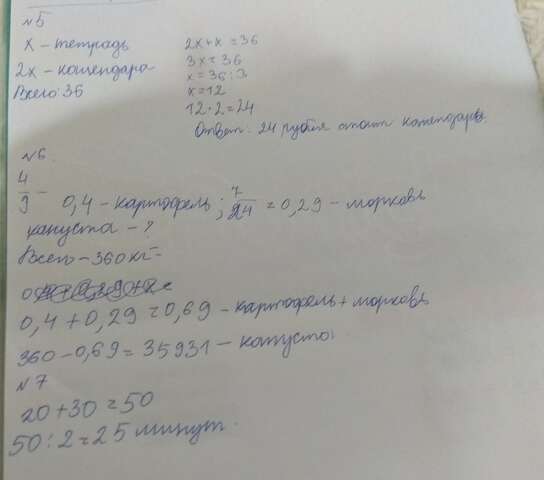 №5
x – тетрадь
2x – календара
Всего: 36
2x+x=36
3x=36
x=36:3
x=12
12·2=24
Ответ: 24 рубля стоит календарь
№6
4/9 – 0,4 – картофель; 7/24 = 0,29 – морковь
капуста – ?
Всего – 360 кг
0,4+0,29=0,69 – картофель + морковь
360–0,69=35931 – капуста
№7
20+30=50
50:2=25 минут.